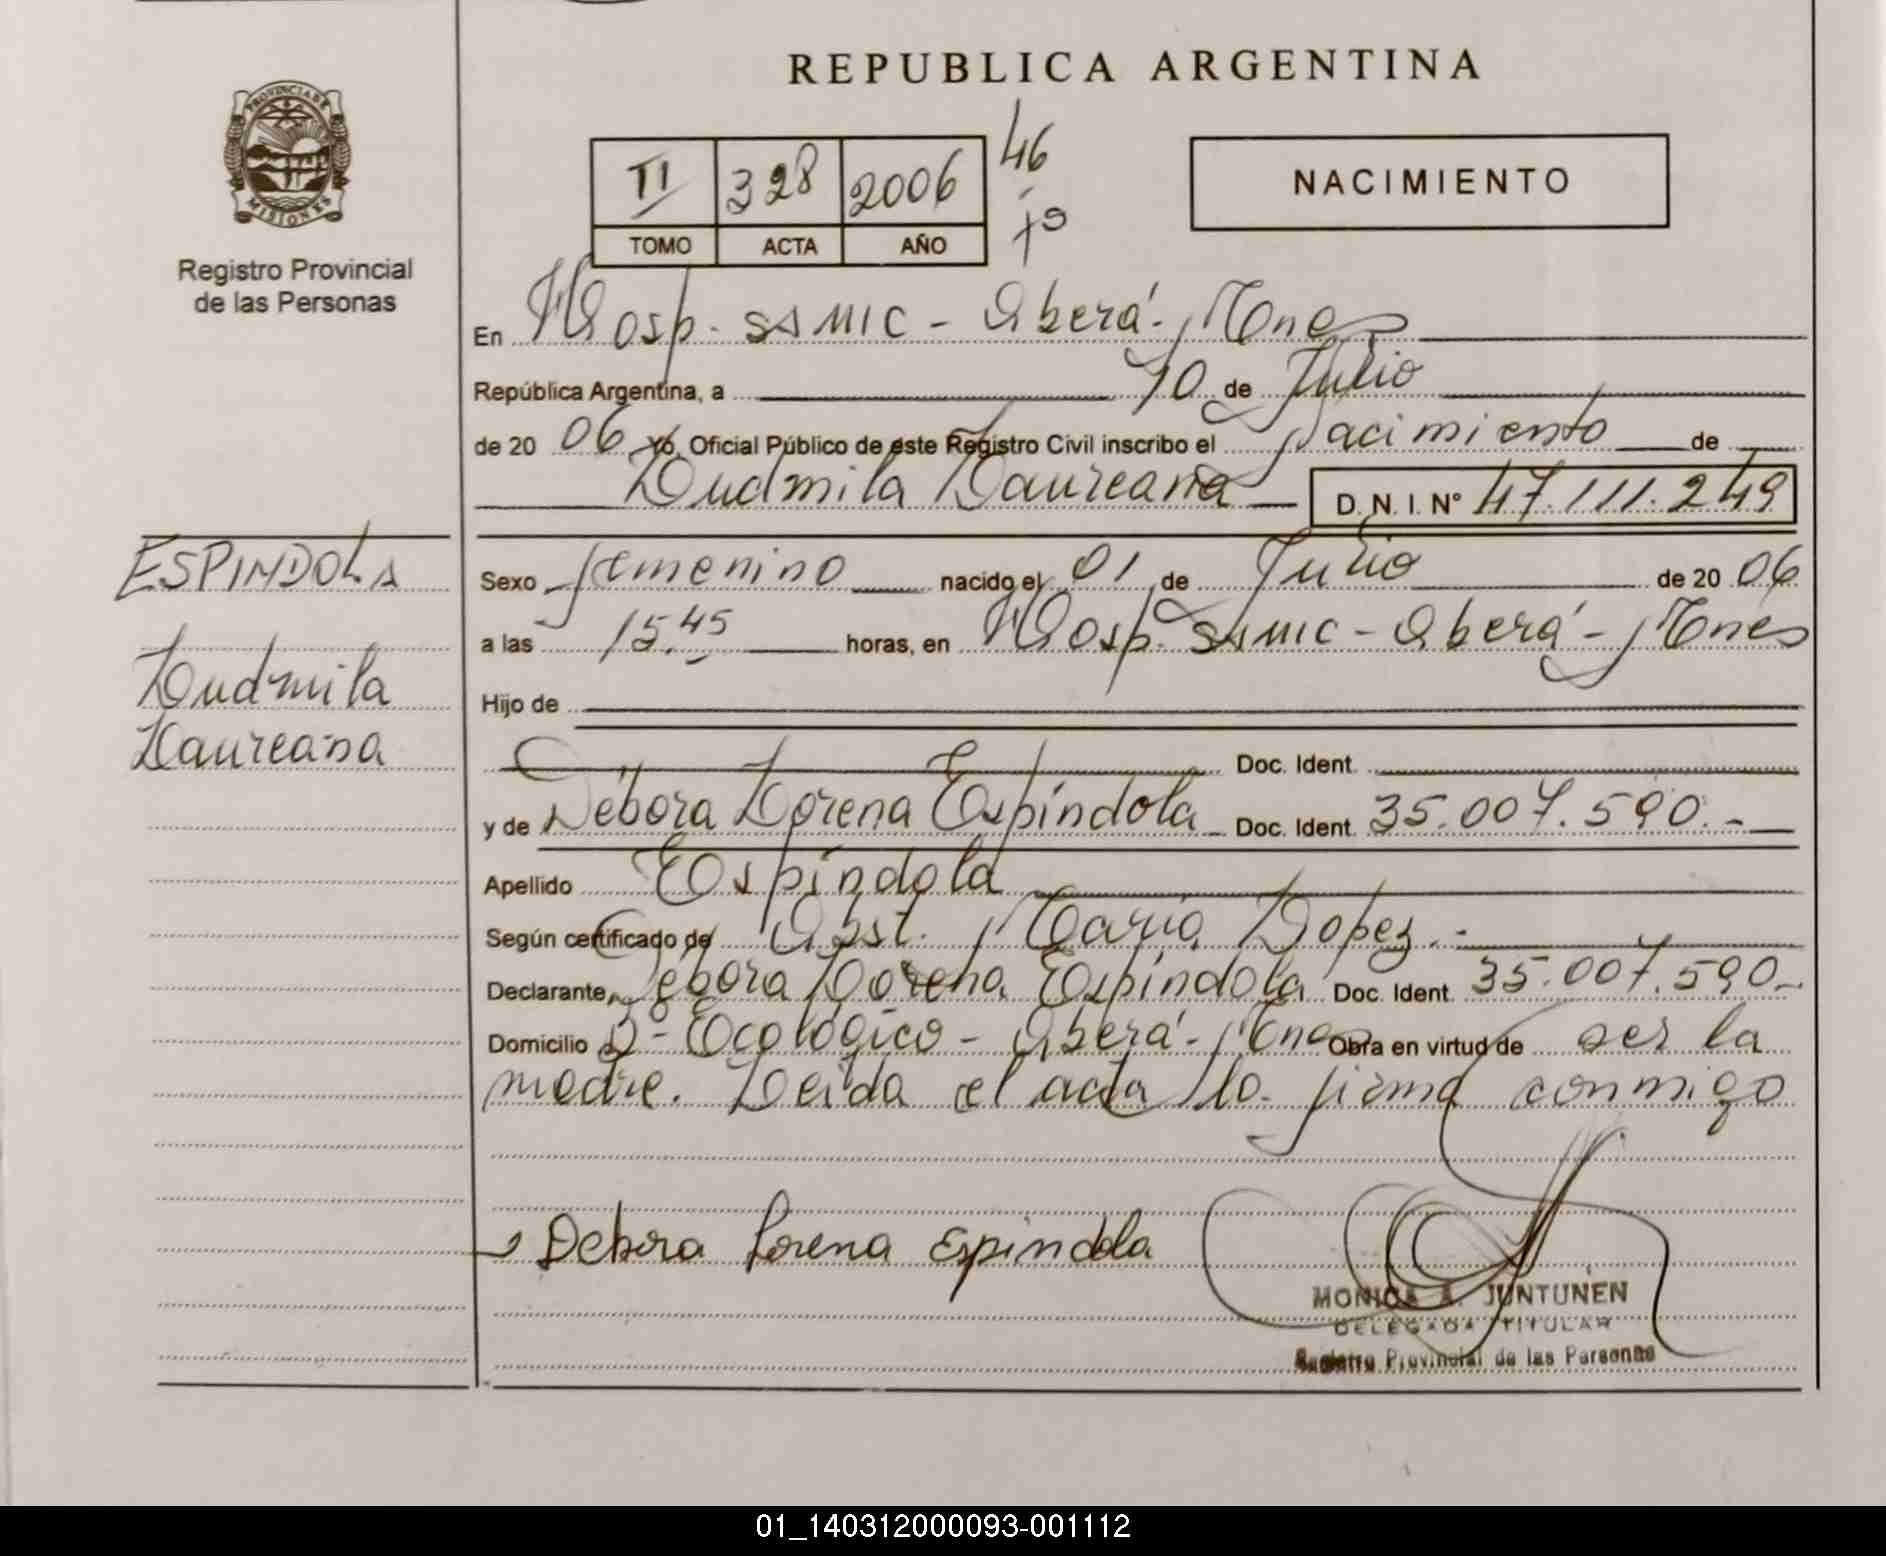 REPUBLICA ARGENTINA
PROVINCIA DE
MISIONES
Registro Provincial
de las Personas
II 328 2006 46
TOMO ACTA AÑO
NACIMIENTO
En Hosp. SAMIC - Oberá - Mnes
República Argentina, a 10 de Julio
de 20 06 Yo, Oficial Público de este Registro Civil inscribo el Nacimiento de
Ludmila Laureana D. N. I. N° 47.111.249
ESPINDOLA
Ludmila
Laureana
Sexo femenino nacido el 01 de Julio de 20 06
a las 15.45 horas, en Hosp. SAMIC - Oberá - Mnes
Hijo de
Doc. Ident.
y de Débora Lorena Espíndola Doc. Ident. 35.007.590.-
Apellido Espíndola
Según certificado de Obst. María Lopez.-
Declarante Débora Lorena Espíndola Doc. Ident. 35.007.590.-
Domicilio Bº Ecológico - Oberá - Mnes Obra en virtud de ser la
madre. Leída el acta la firma conmigo
Debora Lorena Espindola
MONICA A. JUNTUNEN
DELEGADA TITULAR
Registro Provincial de las Personas
01_140312000093-001112